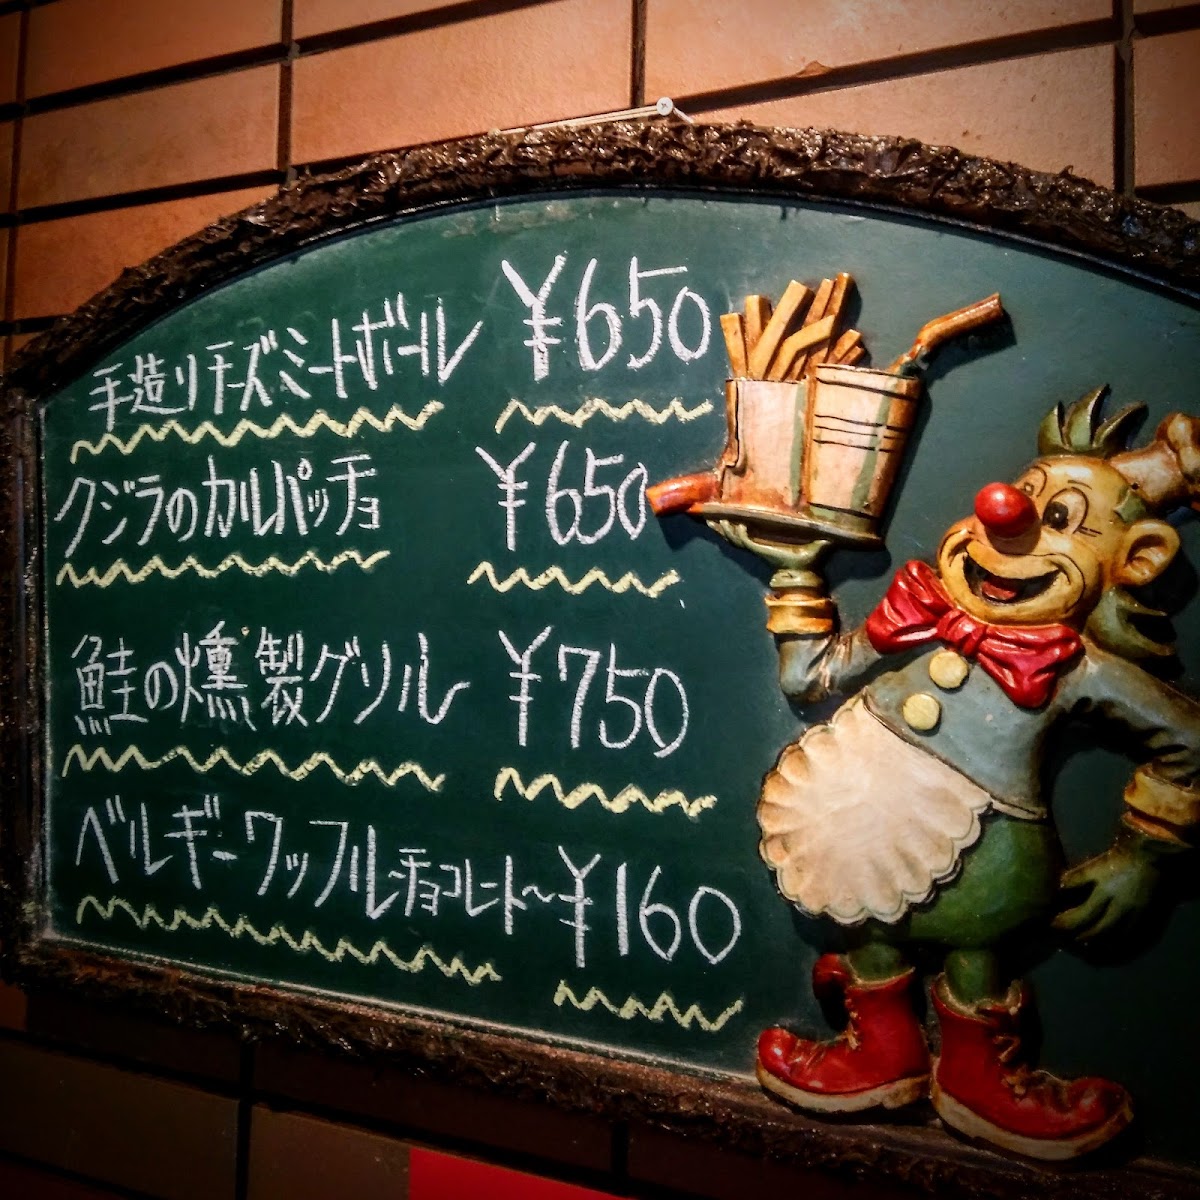 手造りチーズミートボール ¥650
クジラのカルパッチョ ¥650
鮭の燻製グリル ¥750
ベルギーワッフルチョコレート〜¥160